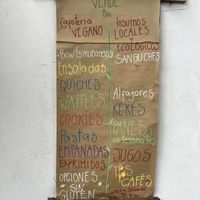 VERDE
Bio
Cafetería
VEGANO
INSUMOS
LOCALES
ECOLOGICOS
SANGUCHES
Bowls mañaneros
Ensaladas
QUICHES
WAFFLES
COOKIES
Pastas
EMPANADAS
EXPRIMIDOS
OPCIONES
SIN
GLUTEN
Alfajores
KEKES
PANES
artesanales
JUGOS
CAFÉS